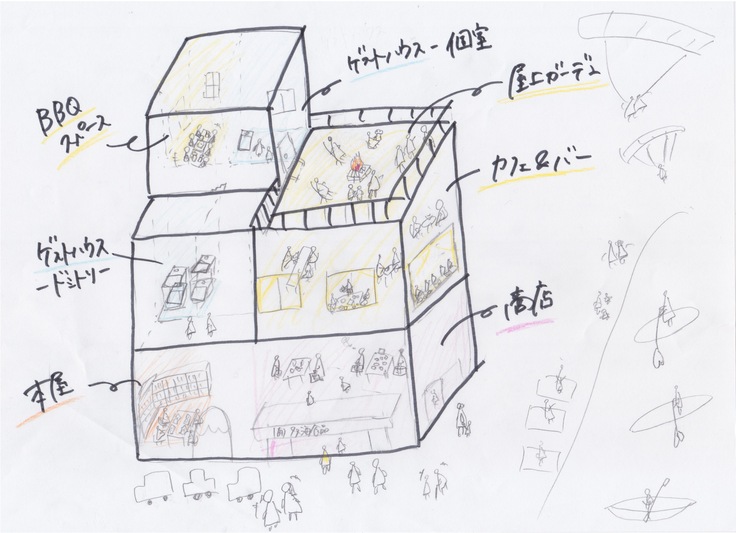 ゲストハウス-個室
屋上ガーデン
BBQ
スペース
カフェ&バー
ゲストハウス
-ドミトリー
商店
本屋